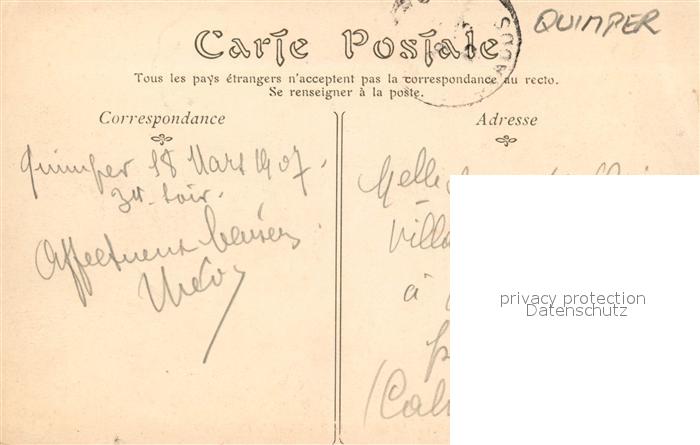 QUIMPER
Carte Postale
Tous les pays étrangers n'acceptent pas la correspondance au recto.
Se renseigner à la poste.
Correspondance
Adresse
Quimper 18 Mars 1907.
soir.
Affectueux baisers
Melle
Villa
à
(Calv
privacy protection
Datenschutz